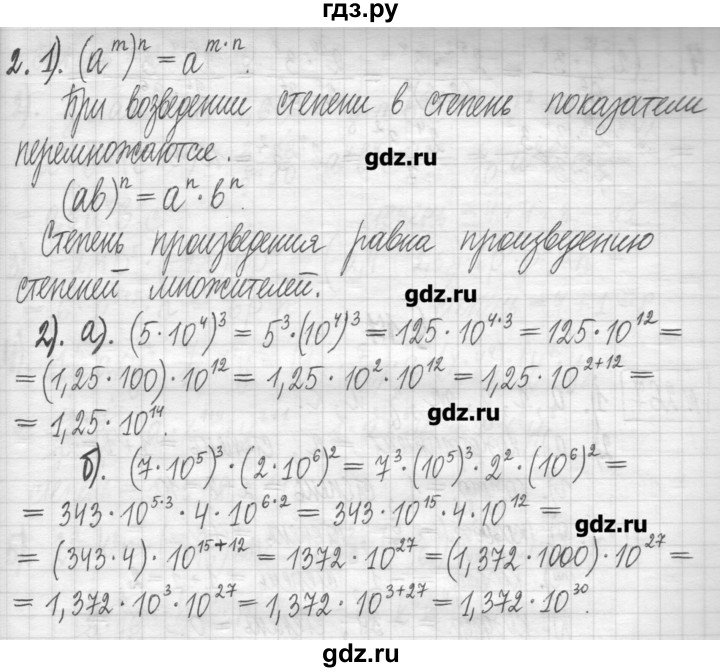 гдз.ру
2. 1). (a^m)^n = a^{m·n}.
При возведении степени в степень показатели
перемножаются.
gdz.ru
(ab)^n = a^n · b^n.
Степень произведения равна произведению
степеней множителей.
gdz.ru
2). а). (5·10^4)^3 = 5^3·(10^4)^3 = 125·10^{4·3} = 125·10^{12} =
= (1,25·100)·10^{12} = 1,25·10^2·10^{12} = 1,25·10^{2+12} =
= 1,25·10^{14}.
gdz.ru
б). (7·10^5)^3·(2·10^6)^2 = 7^3·(10^5)^3·2^2·(10^6)^2 =
= 343·10^{5·3}·4·10^{6·2} = 343·10^{15}·4·10^{12} =
gdz.ru
= (343·4)·10^{15+12} = 1372·10^{27} = (1,372·1000)·10^{27} =
= 1,372·10^3·10^{27} = 1,372·10^{3+27} = 1,372·10^{30}.
gdz.ru